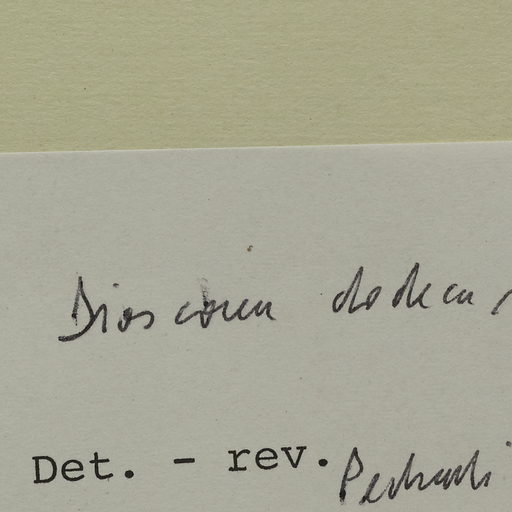 Dioscorea dodecan
Det. - rev. Pedralli